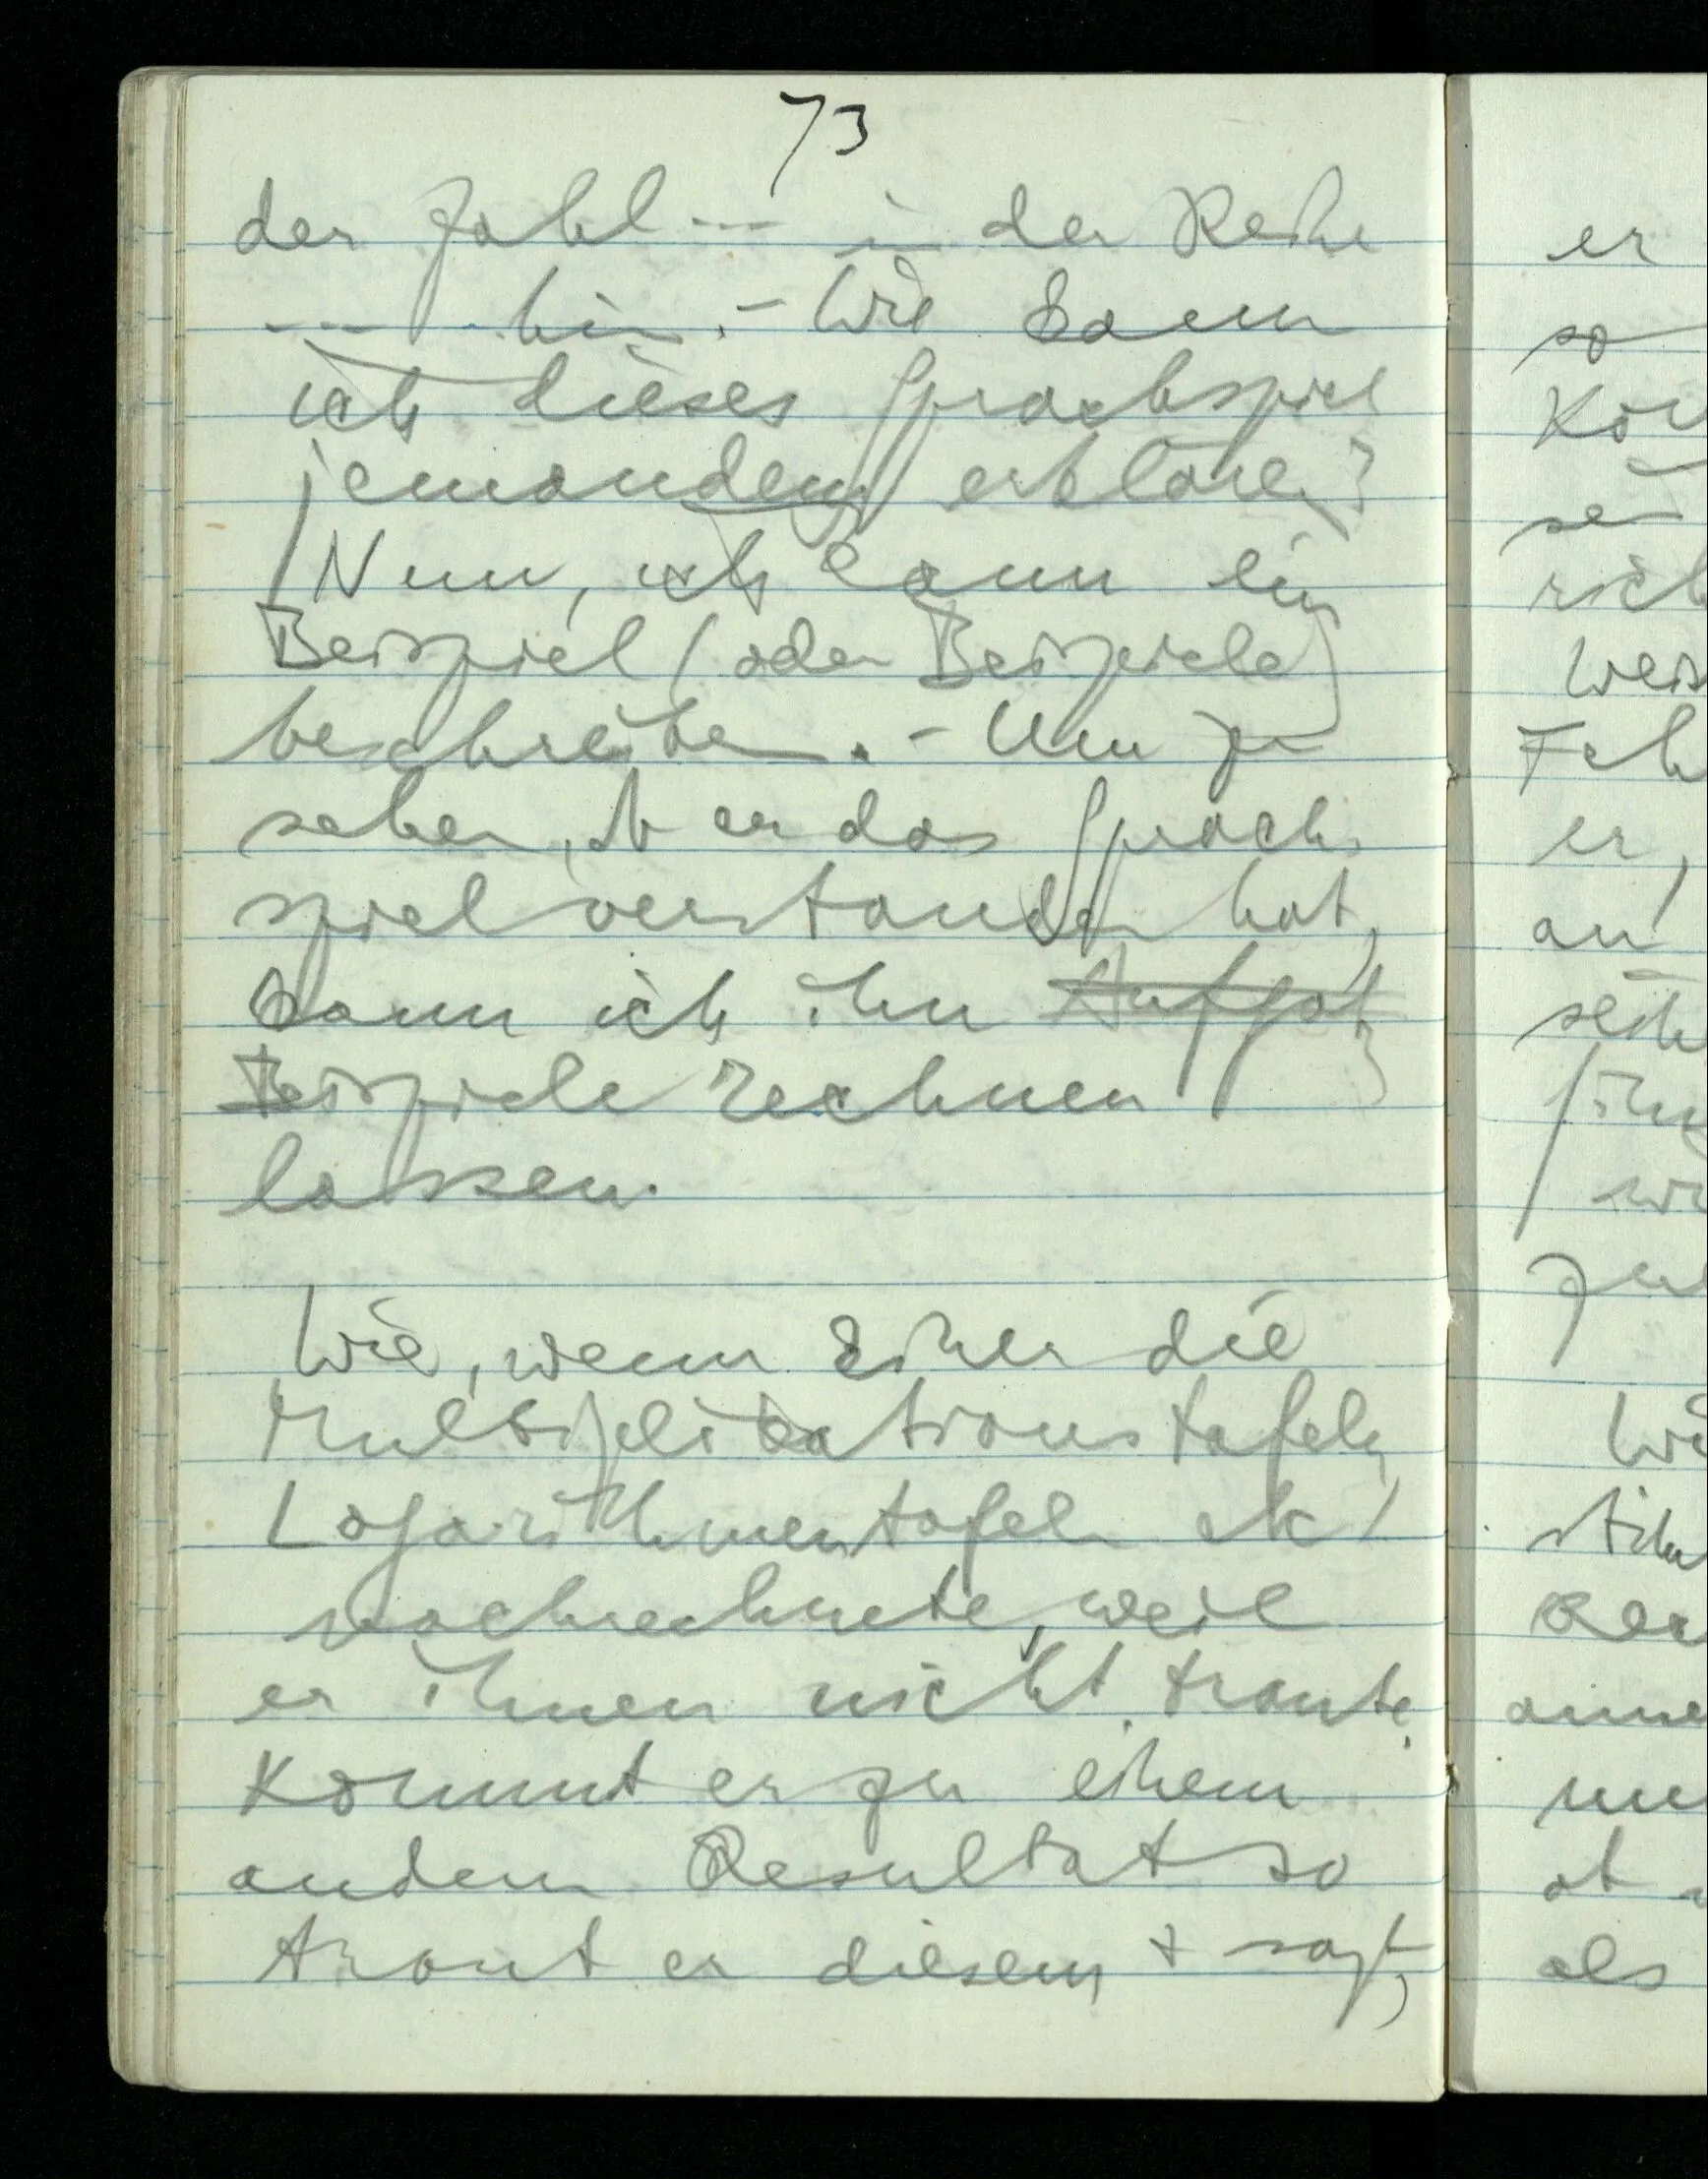 73
der Zahl --- in der Reihe
--- hin. – Wie kann
ich dieses Sprachspiel
jemandem erklären?
Nun, ich kann ein
Beispiel (oder Beispiele)
beschreiben. – Um zu
sehen, ob er das Sprach-
spiel verstanden hat,
kann ich ihn Aufgab
Beispiele rechnen
lassen.
Wie, wenn Einer die
Multiplikationstafeln,
Logarithmentafeln etc
nachrechnete, weil
er ihnen nicht traute.
Kommt er zu einem
andern Resultat so
traut er diesem + sagt,
er
so
an
als